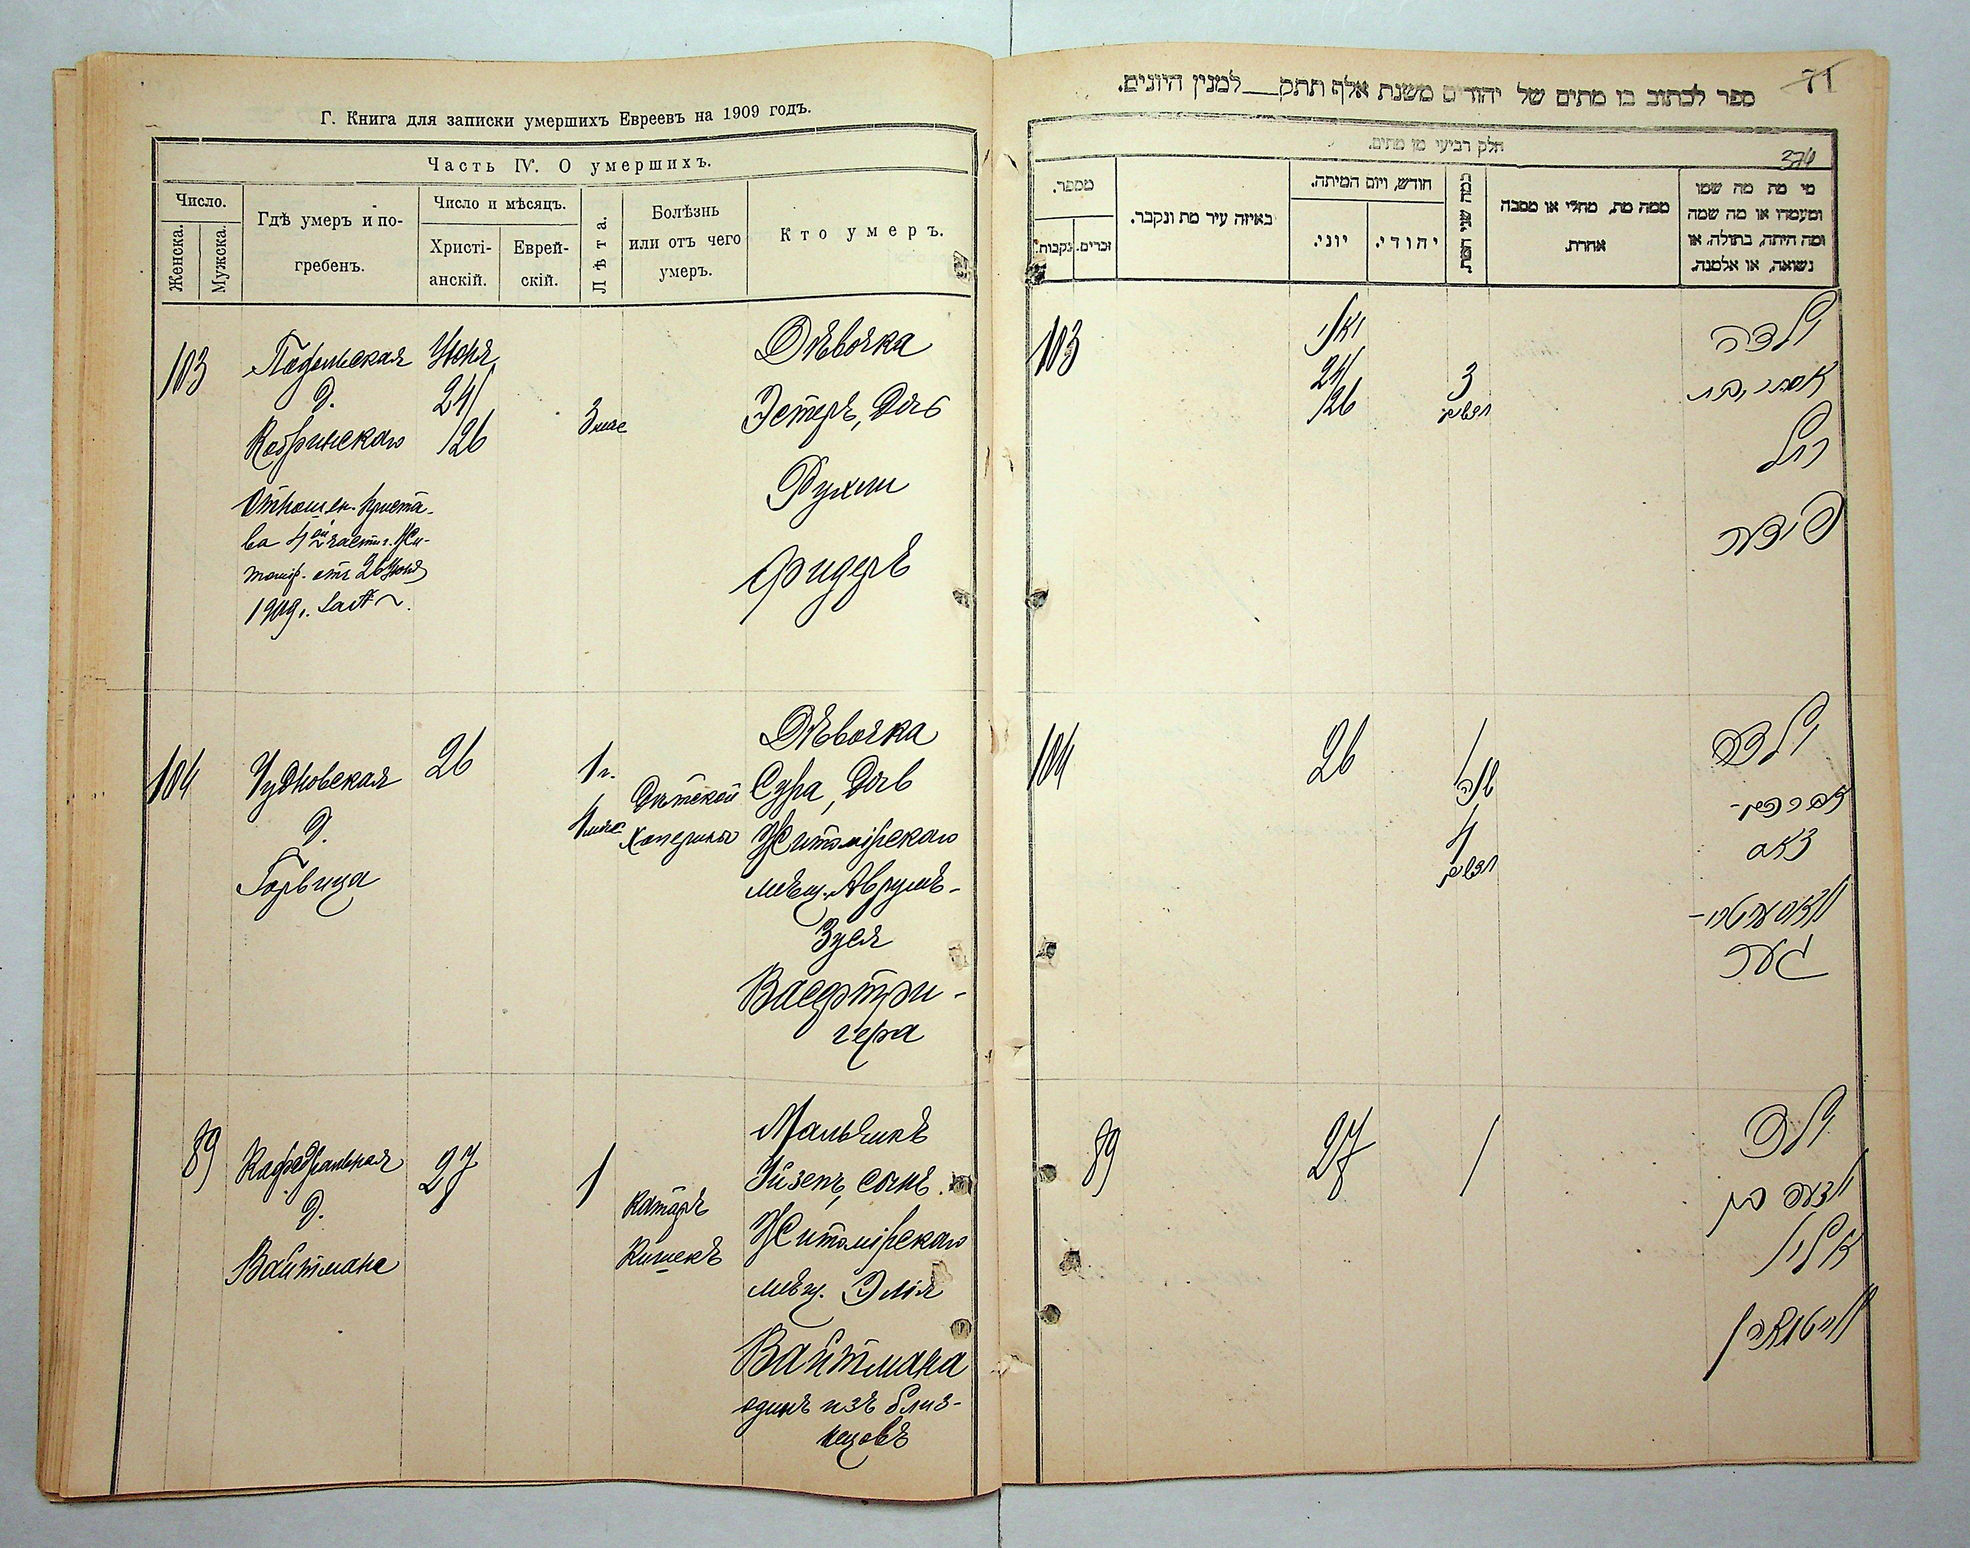 Г. Книга для записки умершихъ Евреевъ на 1909 годъ.
Часть IV. О умершихъ.
Число.
Женска.
Мужска.
Гдѣ умеръ и по-
гребенъ.
Число и мѣсяцъ.
Христі-
анскій.
Еврей-
скій.
Лѣта.
Болѣзнь
или отъ чего
умеръ.
Кто умеръ.
103
Подольская
д.
Кобринскаго
Отношен. Приста-
ва 4 ой части г. Жи-
томір. отъ 26 Іюня
1909 г.
Іюня
24/
/26
3 мѣс
Дѣвочка
Эстеръ, дочь
Рухли
Фидеръ
104
Чудновская
д.
Горвица
26
1 г.
4 мѣс
Дѣтской
Холерины
Дѣвочка
Сура, дочь
Житомірскаго
мѣщ. Аврумъ-
Зуся
Васертри-
гера
89
Кафедральная
д.
Вайтмана
27
1
Катаръ
Кишекъ
Мальчикъ
Ійзепъ, сынъ
Житомірскаго
мѣщ. Элія
Вайтмана
одинъ изъ близ-
нецовъ
71
ספר לכתוב בו מתים של יהודים משנת אלף תתק__למנין היונים.
374
חלק רביעי מן מתים.
מספר.
נקבות.
זכרים.
באיזה עיר מת ונקבר.
חודש, ויום המיתה.
יוני.
יהודי.
כמה שני המת.
ממה מת, מחלי או מסבה
אחרת.
מי מת מה שמו
ומעמדו או מה שמה
ומה היתה, בתולה, או
נשואה, או אלמנה.
103
יוני
24/
/26
3
חדשים
ילדה
אסתר, בת
רחל
פידער
104
26
1
שנה
4
חדשים
ילדה
וואסערטרי-
גער
89
27
1
ילד
יוזעפ בן
אליו
ווייטמאן